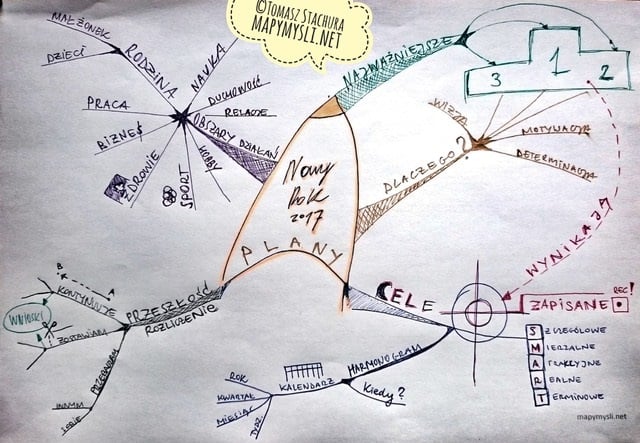 ©TOMASZ STACHURA
MAPYMYSLI.NET
Nowy
Rok
2017
PLANY
NAJWAŻNIEJSZE
1
2
3
DLACZEGO?
WIZJA
MOTYWACJA
DETERMINACJA
WYNIKAJĄ
CELE
ZAPISANE
REC!
SZCZEGÓŁOWE
MIERZALNE
ATRAKCYJNE
REALNE
TERMINOWE
HARMONOGRAM
Kiedy?
KALENDARZ
ROK
KWARTAŁ
MIESIĄC
TYDZ.
PRZESZŁOŚĆ
ROZLICZENIE
KONTYNUUJĘ
A
B
ZOSTAWIAM
WNIOSKI
INNYM
OBSZARY DZIAŁAŃ
RODZINA
MAŁŻONEK
DZIECI
NAUKA
DUCHOWOŚĆ
RELACJE
PRACA
BIZNES
ZDROWIE
SPORT
HOBBY
mapymysli.net